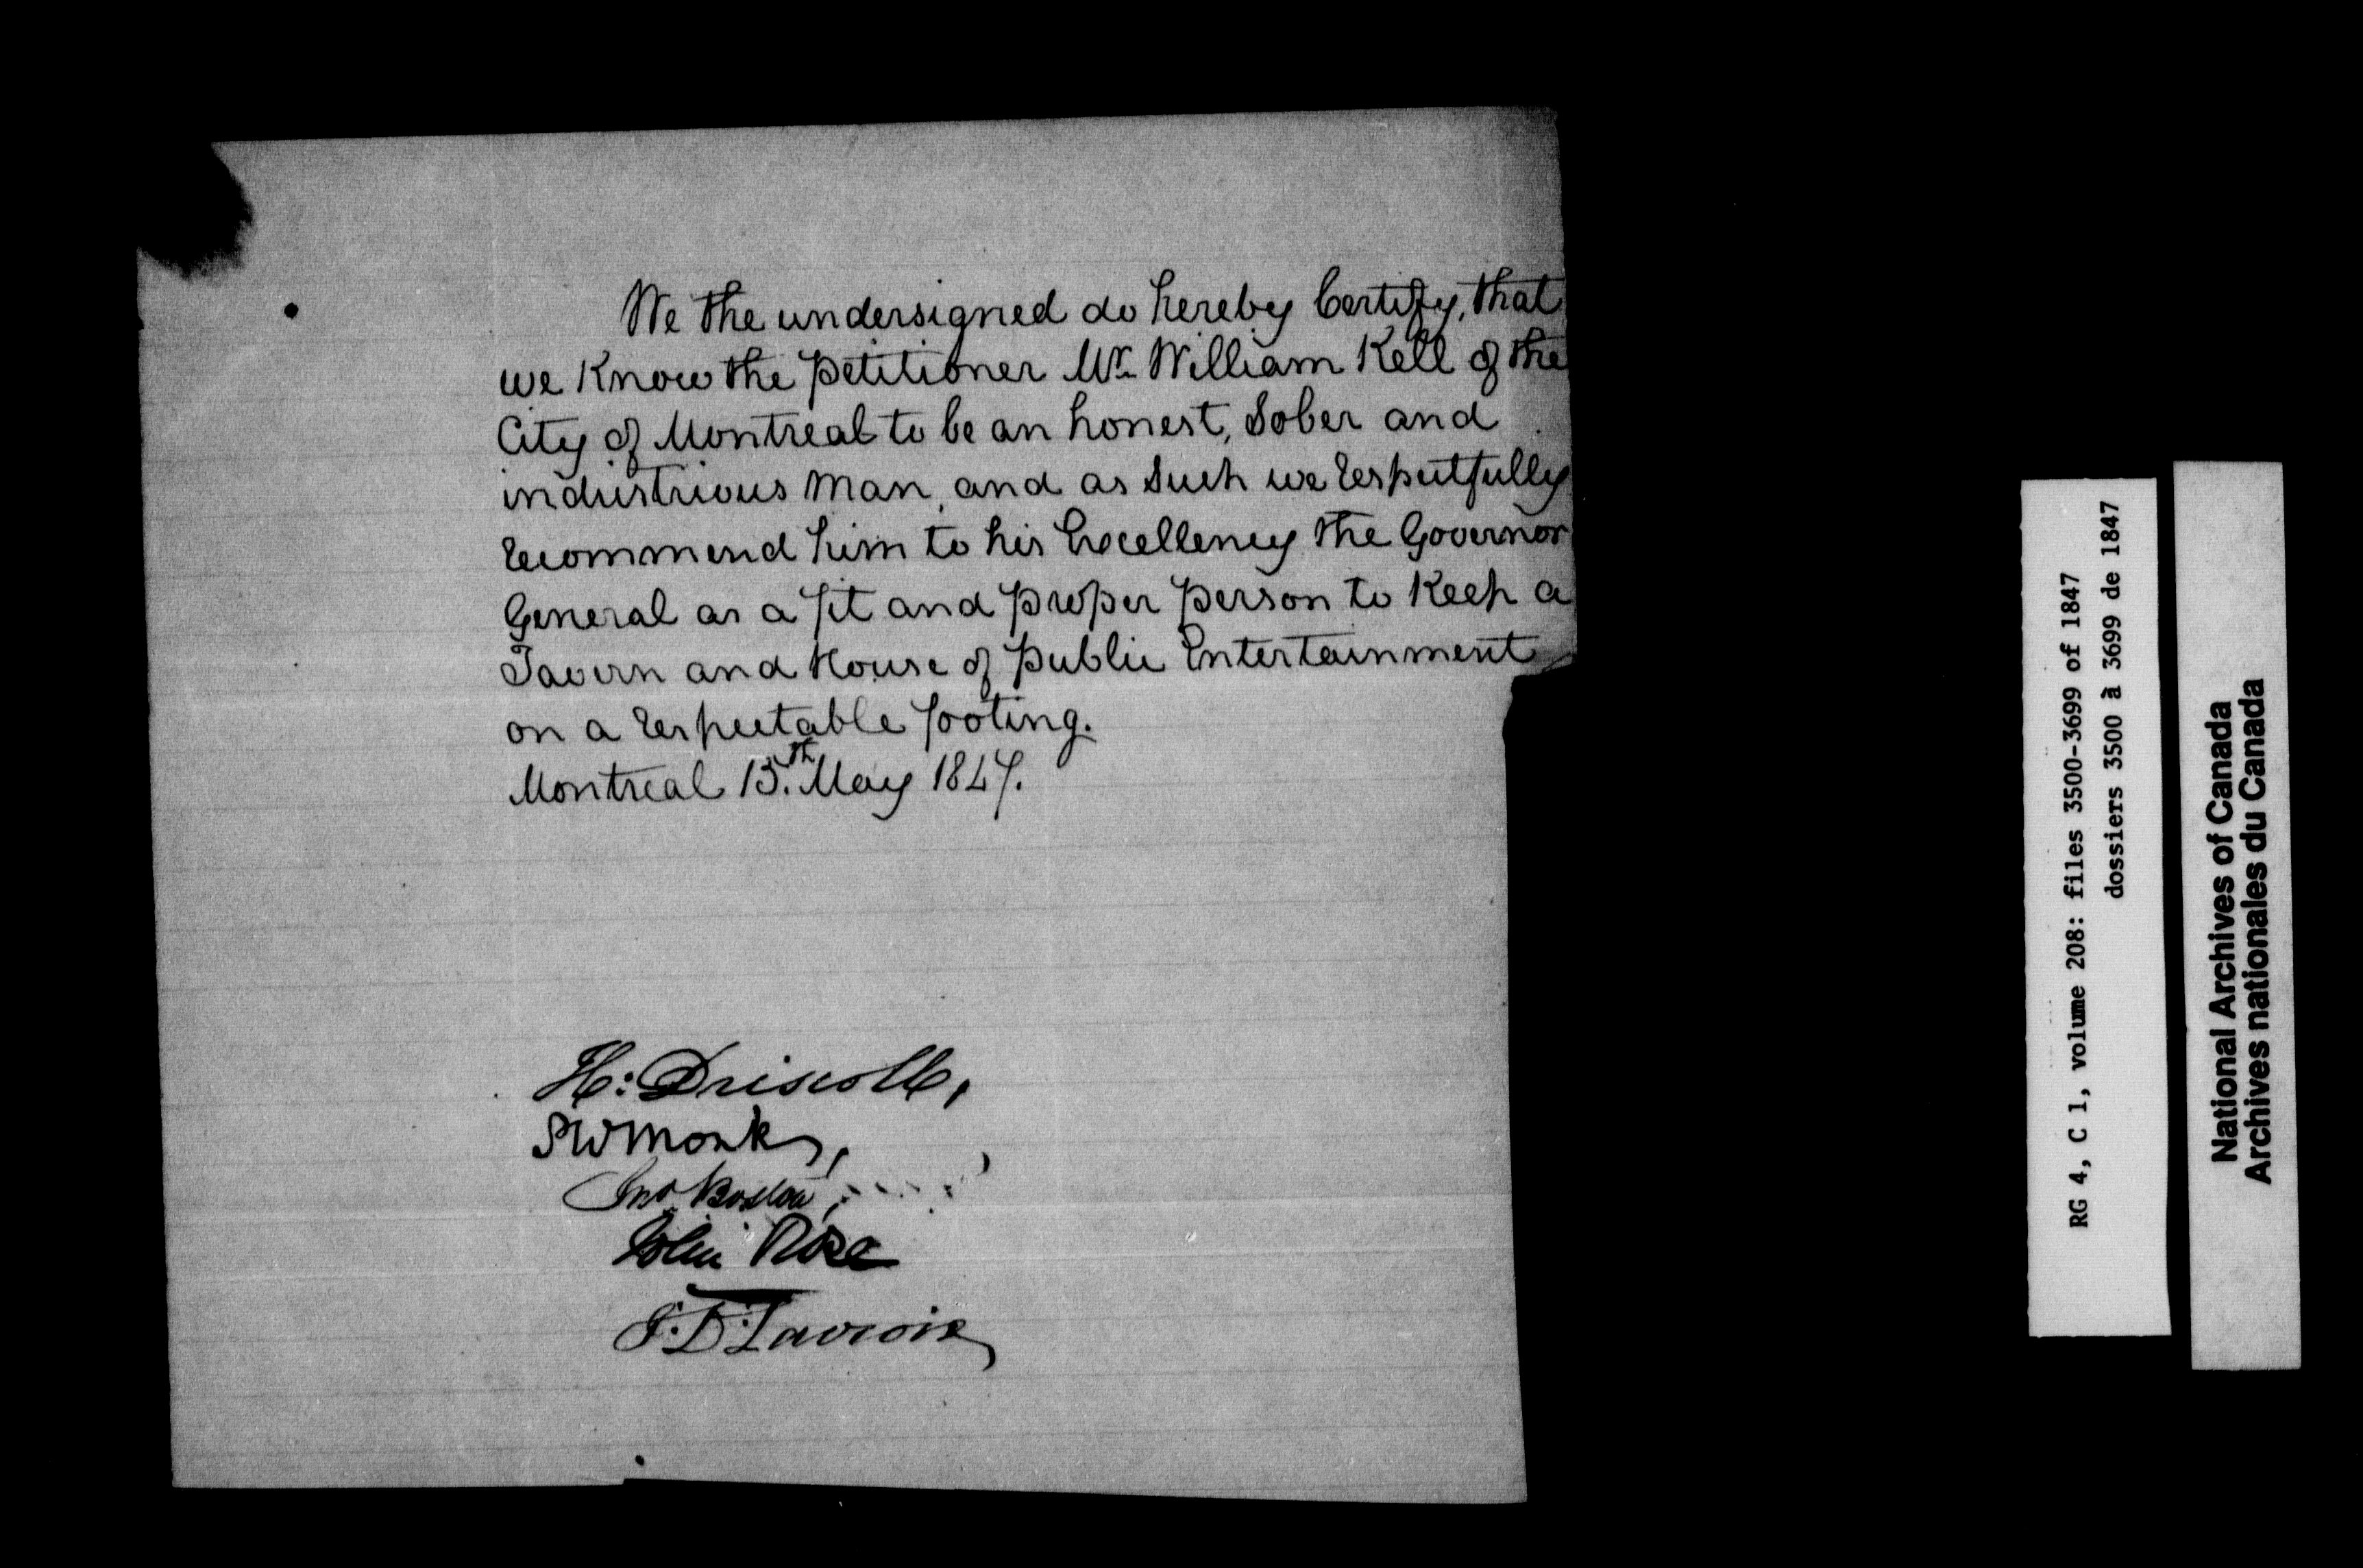 We the undersigned do hereby Certify, that
we Know the petitioner Mr. William Kell of the
City of Montreal to be an honest, Sober and
industrious man, and as Such we respectfully
recommend him to his Excellency the Governor
General as a fit and proper person to Keep a
Tavern and House of public Entertainment
on a respectable footing.
Montreal 13th. May 1847.
H: Driscoll,
Monk,
Jno Boston,
John Rose
RG 4, C 1, volume 208: files 3500-3699 of 1847
dossiers 3500 à 3699 de 1847
National Archives of Canada
Archives nationales du Canada